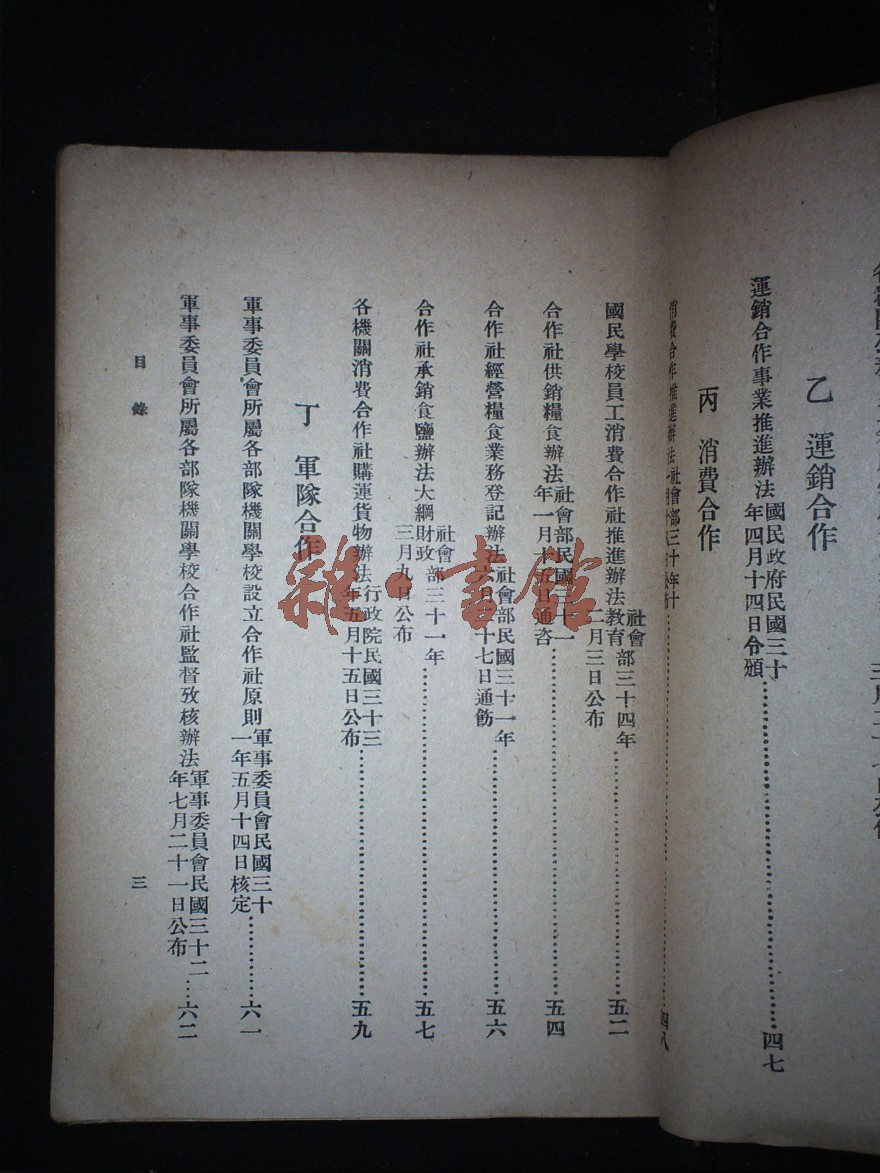 乙　運銷合作
運銷合作事業推進辦法國民政府民國三十年四月十四日令頒……四七
丙　消費合作
消費合作推進辦法社會部三十年十……四八
國民學校員工消費合作社推進辦法社會教育部三十四年二月三日公布……五二
合作社供銷糧食辦法社會部民國三十一年一月十五日通咨……五四
合作社經營糧食業務登記辦法社會部民國三十一年六月十七日通飭……五六
合作社承銷食鹽辦法大綱社會財政部三十一年三月九日公布……五七
各機關消費合作社購運貨物辦法行政院民國三十三年五月十五日公布……五九
丁　軍隊合作
軍事委員會所屬各部隊機關學校設立合作社原則軍事委員會民國三十一年五月十四日核定……六一
軍事委員會所屬各部隊機關學校合作社監督攷核辦法軍事委員會民國三十二年七月二十一日公布……六二
目錄
三
雜·書館